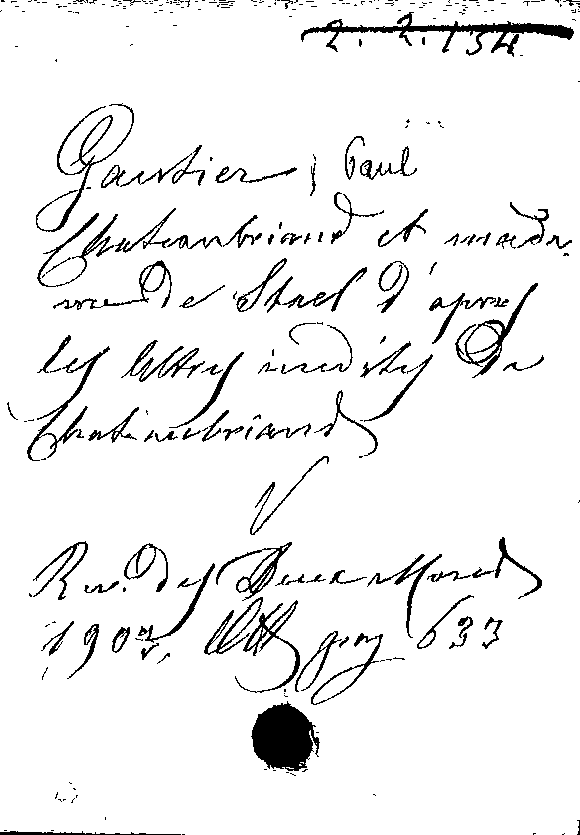 2.2.134
Gautier, Paul
Chateaubriand et mada-
me de Stael d'apres
les lettres inedites de
Chateaubriand
Rev. des Deux Mond
1903, Oct pag 633